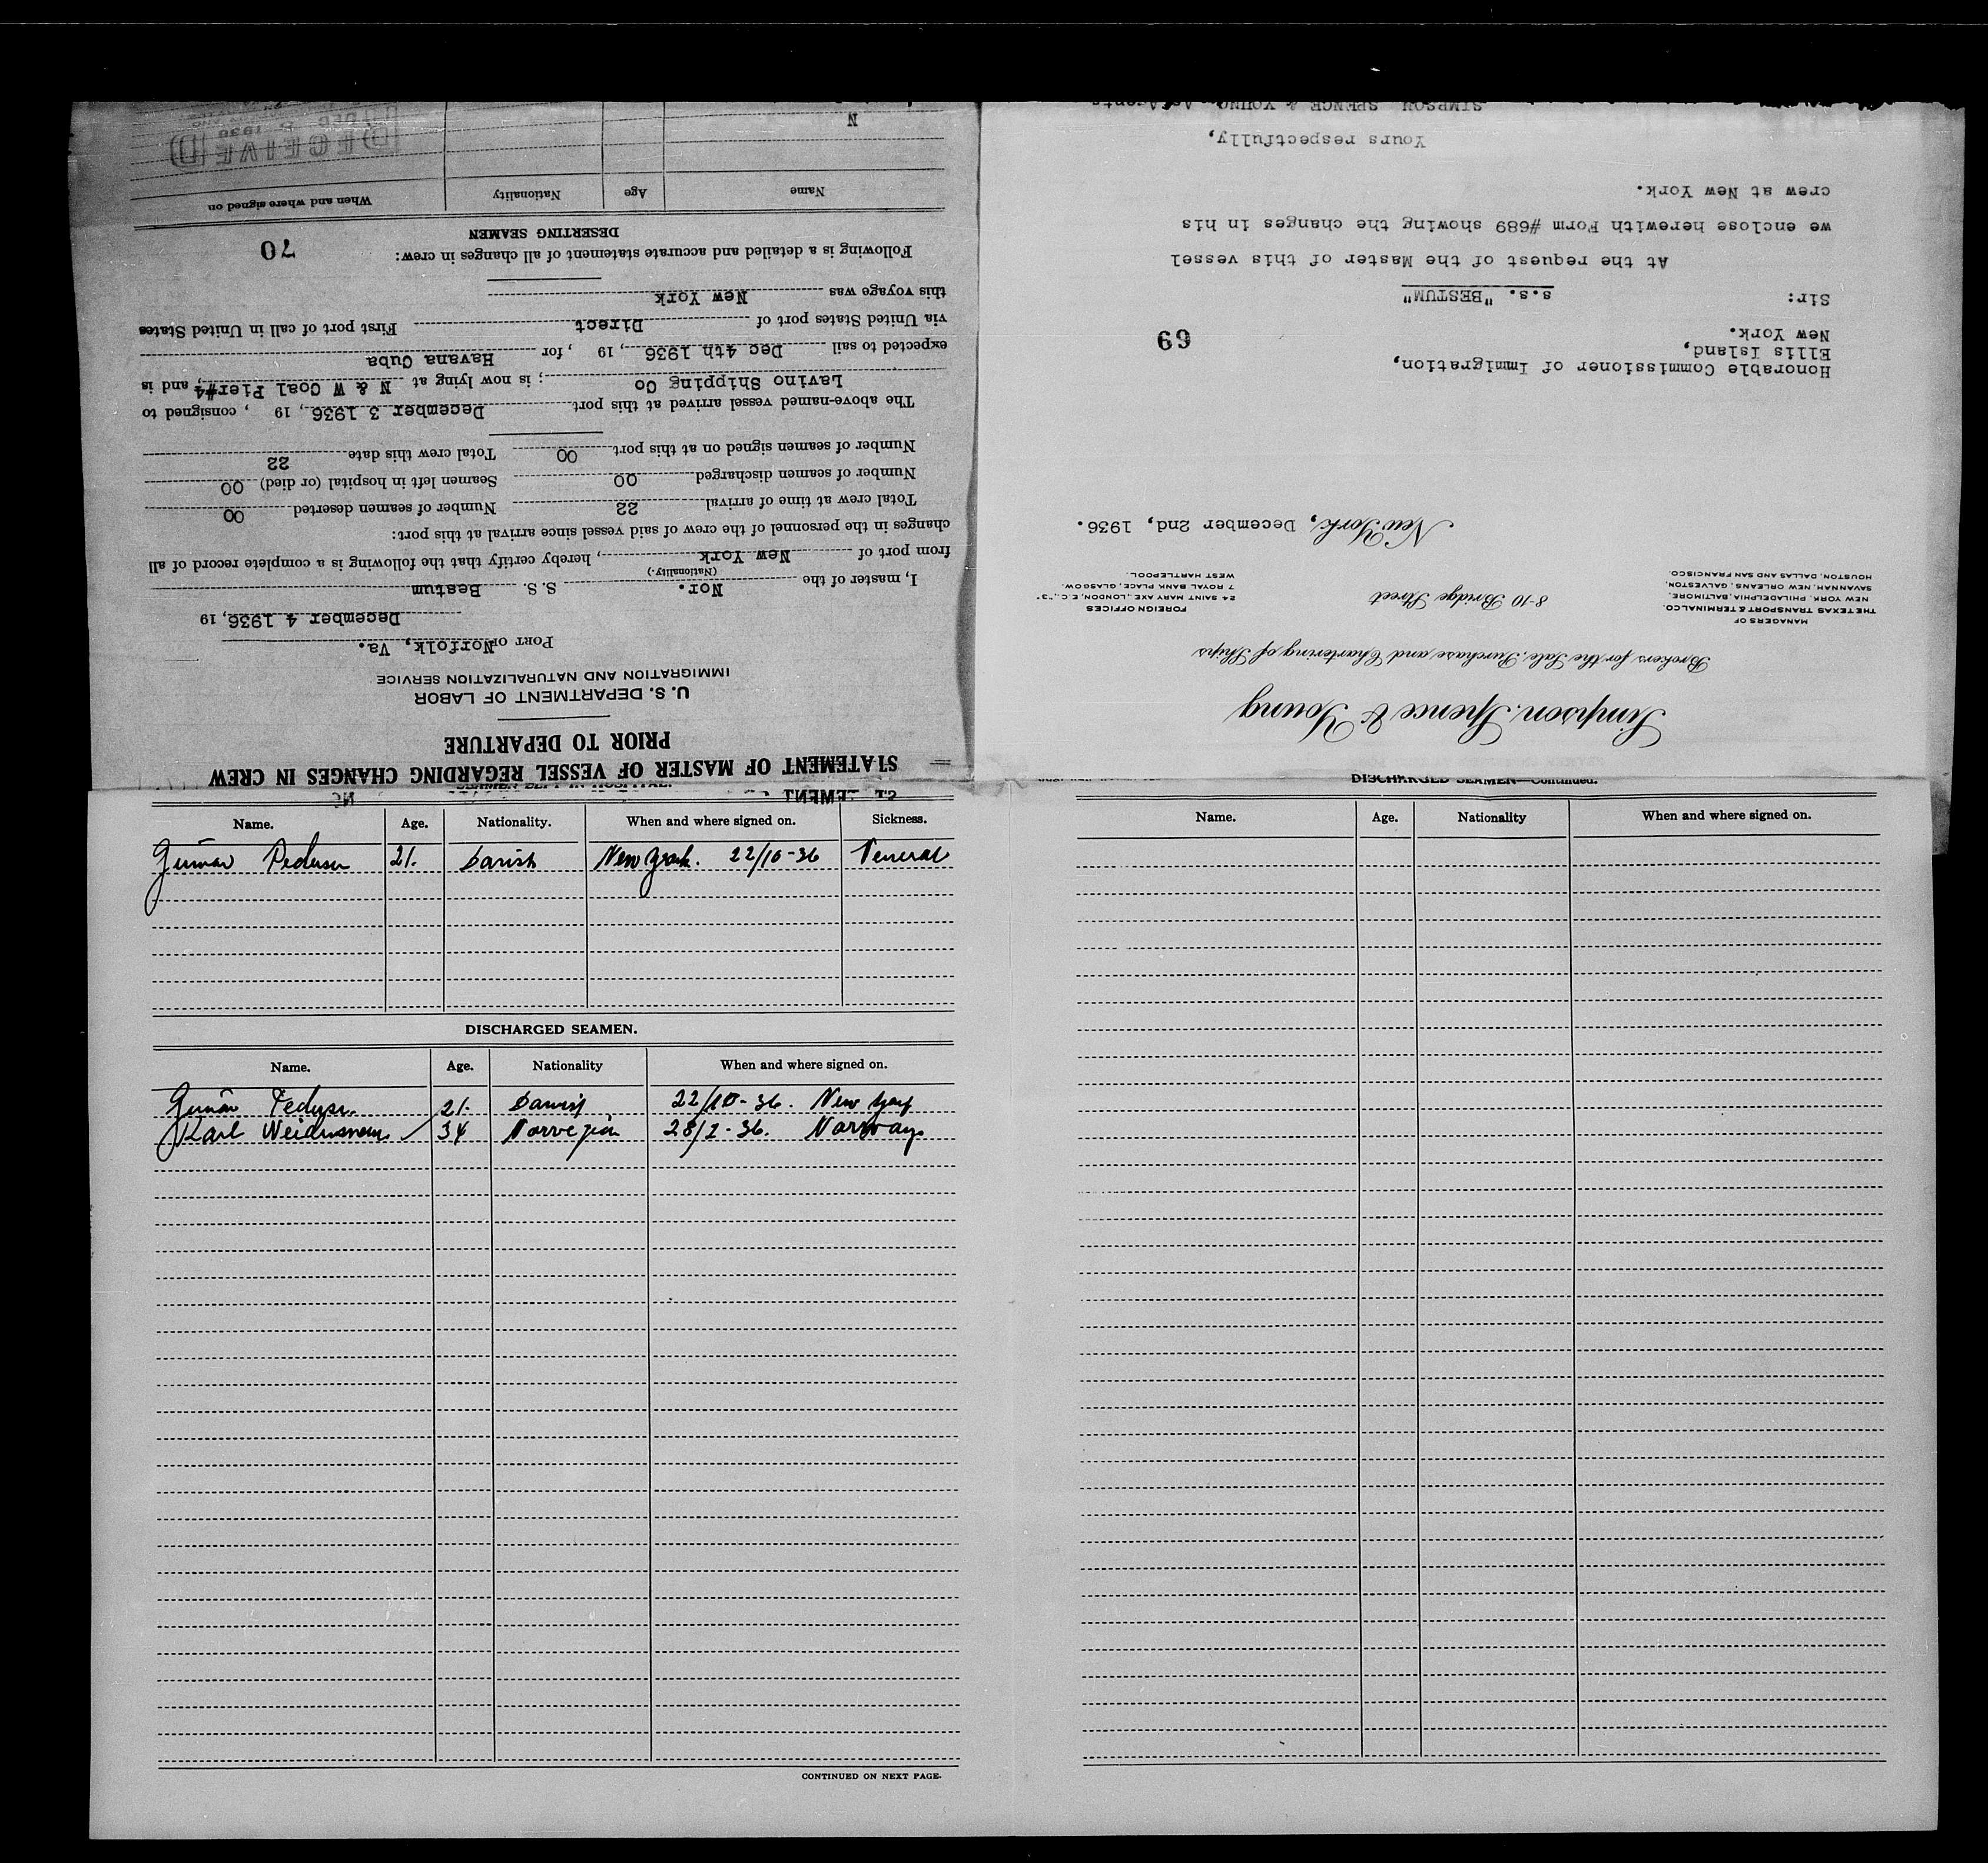 STATEMENT OF MASTER OF VESSEL REGARDING CHANGES IN CREW
PRIOR TO DEPARTURE
U. S. DEPARTMENT OF LABOR
IMMIGRATION AND NATURALIZATION SERVICE
PORT OF Norfolk, Va.
December 4 1936, 19
I, master of the Nor. S. S. Bestum
(Nationality.)
from port of New York, hereby certify that the following is a complete record of all
changes in the personnel of the crew of said vessel since arrival at this port:
Total crew at time of arrival 22 Number of seamen deserted 00
Number of seamen discharged 00 Seamen left in hospital (or died) 00
Number of seamen signed on at this port 00 Total crew this date 22
The above-named vessel arrived at this port December 3 1936, 19 , consigned to
Lavino Shipping Co ; is now lying at N & W Coal Pier#4, and is
expected to sail Dec 4th 1936, 19 , for Havana Cuba
via United States port of Direct First port of call in United States
this voyage was New York
Following is a detailed and accurate statement of all changes in crew: 70
DESERTING SEAMEN
Name Age Nationality When and where signed on
N
RECEIVED
DEC 1936
Simpson, Spence & Young
Brokers for the Sale, Purchase and Chartering of Ships
MANAGERS OF
THE TEXAS TRANSPORT & TERMINAL CO.
NEW YORK, PHILADELPHIA, BALTIMORE,
SAVANNAH, NEW ORLEANS, GALVESTON,
HOUSTON, DALLAS AND SAN FRANCISCO.
8-10 Bridge Street
FOREIGN OFFICES
24 SAINT MARY AXE, LONDON, E.C., "3"
7 ROYAL BANK PLACE, GLASGOW.
WEST HARTLEPOOL.
New York, December 2nd, 1936.
Honorable Commissioner of Immigration,
Ellis Island,
New York. 69
Sir: s.s. "BESTUM"
At the request of the Master of this vessel
we enclose herewith Form #689 showing the changes in his
crew at New York.
Yours respectfully,
SIMPSON SPENCE & YOUNG, As Agents
SEAMEN LEFT IN HOSPITAL.
Name. Age. Nationality. When and where signed on. Sickness.
Gunnar Pedersen 21. Danish New York. 22/10-36 Veneral
DISCHARGED SEAMEN.
Name. Age. Nationality When and where signed on.
Gunnar Pedersen 21. Danish 22/10-36. New York
Karl 34 Norvegian 28/2-36. Norway.
CONTINUED ON NEXT PAGE.
DISCHARGED SEAMEN—Continued.
Name. Age. Nationality When and where signed on.